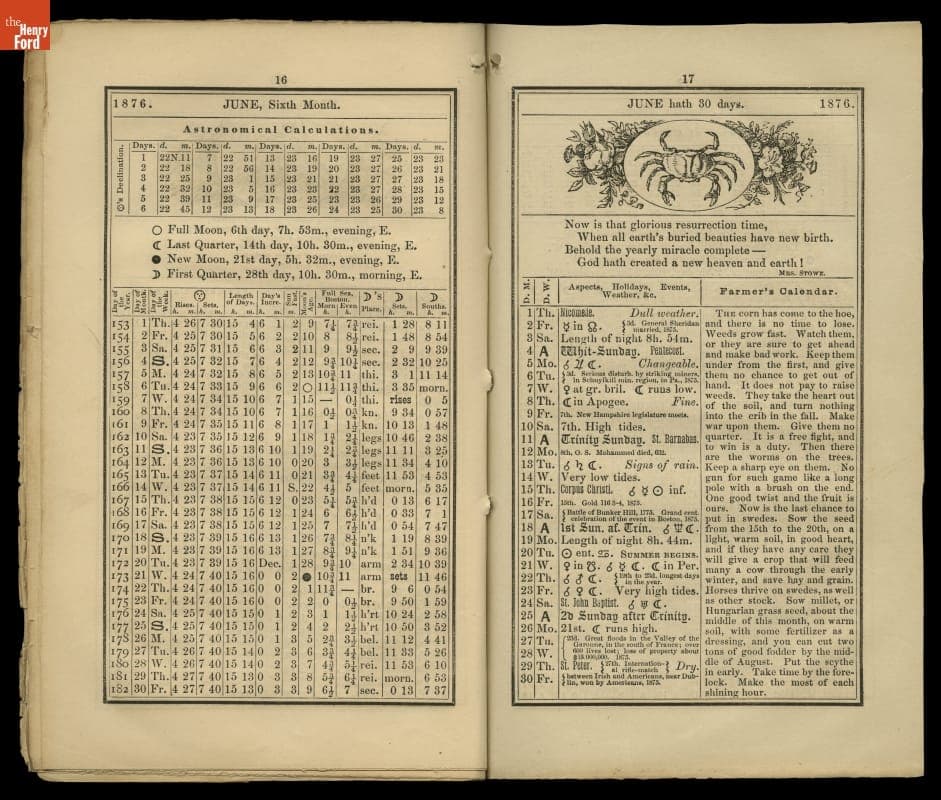 the
Henry
Ford
16
1876. JUNE, Sixth Month.
Astronomical Calculations.
☉'s Declination.
Days. d. m. Days. d. m. Days. d. m. Days. d. m. Days. d. m.
1 22N.11 7 22 51 13 23 16 19 23 27 25 23 23
2 22 18 8 22 56 14 23 19 20 23 27 26 23 21
3 22 25 9 23 1 15 23 21 21 23 27 27 23 18
4 22 32 10 23 5 16 23 23 22 23 27 28 23 15
5 22 39 11 23 9 17 23 25 23 23 26 29 23 12
6 22 45 12 23 13 18 23 26 24 23 25 30 23 8
○ Full Moon, 6th day, 7h. 53m., evening, E.
☾ Last Quarter, 14th day, 10h. 30m., evening, E.
● New Moon, 21st day, 5h. 32m., evening, E.
☽ First Quarter, 28th day, 10h. 30m., morning, E.
Day of the Year. Day of Month. Day of the Week. Rises. Sets. Length of Days. Day's Incre. Sun Fast. Moon's Age. Full Sea, Boston. Morn. Even. ☽'s Place. ☽ Sets. ☽ Souths.
h. m. h. m. h. m. h. m. h. m. h. m.
153 1 Th. 4 26 7 30 15 4 6 1 2 9 7¼ 7¾ rei. 1 28 8 11
154 2 Fr. 4 25 7 30 15 5 6 2 2 10 8 8½ rei. 1 48 8 54
155 3 Sa. 4 25 7 31 15 6 6 3 2 11 9 9½ sec. 2 9 9 39
156 4 S. 4 25 7 32 15 7 6 4 2 12 9¾ 10¼ sec. 2 32 10 25
157 5 M. 4 24 7 32 15 8 6 5 2 13 10¾ 11 thi. 3 1 11 14
158 6 Tu. 4 24 7 33 15 9 6 6 2 ○ 11½ 11¾ thi. 3 35 morn.
159 7 W. 4 24 7 34 15 10 6 7 1 15 — 0¼ thi. rises 0 5
160 8 Th. 4 24 7 34 15 10 6 7 1 16 0½ 0¾ kn. 9 34 0 57
161 9 Fr. 4 24 7 35 15 11 6 8 1 17 1 1½ kn. 10 13 1 48
162 10 Sa. 4 23 7 35 15 12 6 9 1 18 1¾ 2¼ legs 10 46 2 38
163 11 S. 4 23 7 36 15 13 6 10 1 19 2¼ 2¾ legs 11 11 3 25
164 12 M. 4 23 7 36 15 13 6 10 0 20 3 3½ legs 11 34 4 10
165 13 Tu. 4 23 7 37 15 14 6 11 0 21 3¾ 4¼ feet 11 53 4 53
166 14 W. 4 23 7 37 15 14 6 11 S. 22 4½ 5 feet morn. 5 35
167 15 Th. 4 23 7 38 15 15 6 12 0 23 5¼ 5¾ h'd 0 13 6 17
168 16 Fr. 4 23 7 38 15 15 6 12 1 24 6 6½ h'd 0 33 7 1
169 17 Sa. 4 23 7 38 15 15 6 12 1 25 7 7½ h'd 0 54 7 47
170 18 S. 4 23 7 39 15 16 6 13 1 26 7¾ 8¼ n'k 1 19 8 39
171 19 M. 4 23 7 39 15 16 6 13 1 27 8¾ 9¼ n'k 1 51 9 36
172 20 Tu. 4 23 7 39 15 16 Dec. 1 28 9¾ 10 arm 2 34 10 39
173 21 W. 4 24 7 40 15 16 0 0 2 ● 10¾ 11 arm sets 11 46
174 22 Th. 4 24 7 40 15 16 0 0 2 1 11¾ — br. 9 6 0 54
175 23 Fr. 4 24 7 40 15 16 0 0 2 2 0 0½ br. 9 50 1 59
176 24 Sa. 4 25 7 40 15 15 0 1 2 3 1 1½ h'rt 10 24 2 58
177 25 S. 4 25 7 40 15 15 0 1 2 4 2 2½ h'rt 10 50 3 52
178 26 M. 4 25 7 40 15 15 0 1 3 5 2¾ 3½ bel. 11 12 4 41
179 27 Tu. 4 26 7 40 15 14 0 2 3 6 3¾ 4½ bel. 11 33 5 26
180 28 W. 4 26 7 40 15 14 0 2 3 7 4¾ 5¼ rei. 11 53 6 10
181 29 Th. 4 27 7 40 15 13 0 3 3 8 5¾ 6¼ rei. morn. 6 53
182 30 Fr. 4 27 7 40 15 13 0 3 3 9 6½ 7 sec. 0 13 7 37
17
JUNE hath 30 days. 1876.
Now is that glorious resurrection time,
When all earth's buried beauties have new birth.
Behold the yearly miracle complete—
God hath created a new heaven and earth!
MRS. STOWE.
D. M. D. W. Aspects, Holidays, Events, Weather, &c.
1 Th. Nicomede. Dull weather.
2 Fr. ☿ in ☊. 3d. General Sheridan married, 1875.
3 Sa. Length of night 8h. 54m.
4 A Whit-Sunday. Pentecost.
5 Mo. ☌ ♃ ☾. Changeable.
6 Tu. 3d. Serious disturb. by striking miners, in Schuylkill min. region, in Pa., 1875.
7 W. ♀ at gr. bril. ☾ runs low.
8 Th. ☾ in Apogee. Fine.
9 Fr. 7th. New Hampshire legislature meets.
10 Sa. 7th. High tides.
11 A Trinity Sunday. St. Barnabas.
12 Mo. 8th, O. S. Mohammed died, 632.
13 Tu. ☌ ♄ ☾. Signs of rain.
14 W. Very low tides.
15 Th. Corpus Christi. ☌ ☿ ☉ inf.
16 Fr. 15th. Gold 116 3-4, 1875.
17 Sa. Battle of Bunker Hill, 1775. Grand cent. celebration of the event in Boston, 1875.
18 A 1st Sun. af. Trin. ☌ ♆ ☾.
19 Mo. Length of night 8h. 44m.
20 Tu. ☉ ent. ♋. SUMMER BEGINS.
21 W. ♀ in ☋. ☌ ☿ ☾. ☾ in Per.
22 Th. ☌ ♂ ☾. 19th to 23d, longest days in the year.
23 Fr. Very high tides.
24 Sa. St. John Baptist. ☌ ♅ ☾.
25 A 2d Sunday after Trinity.
26 Mo. 21st. ☾ runs high.
27 Tu. 23d. Great floods in the Valley of the Garonne, in the south of France; over
28 W. 600 lives lost; loss of property about $15,000,000, 1875.
29 Th. St. Peter. 27th. International rifle-match Dry.
30 Fr. between Irish and Americans, near Dublin, won by Americans, 1875.
Farmer's Calendar.
THE corn has come to the hoe,
and there is no time to lose.
Weeds grow fast. Watch them,
or they are sure to get ahead
and make bad work. Keep them
under from the first, and give
them no chance to get out of
hand. It does not pay to raise
weeds. They take the heart out
of the soil, and turn nothing
into the crib in the fall. Make
war upon them. Give them no
quarter. It is a free fight, and
to win is a duty. Then there
are the worms on the trees.
Keep a sharp eye on them. No
gun for such game like a long
pole with a brush on the end.
One good twist and the fruit is
ours. Now is the last chance to
put in swedes. Sow the seed
from the 15th to the 20th, on a
light, warm soil, in good heart,
and if they have any care they
will give a crop that will feed
many a cow through the early
winter, and save hay and grain.
Horses thrive on swedes, as well
as other stock. Sow millet, or
Hungarian grass seed, about the
middle of this month, on warm
soil, with some fertilizer as a
dressing, and you can cut two
tons of good fodder by the mid-
dle of August. Put the scythe
in early. Take time by the fore-
lock. Make the most of each
shining hour.